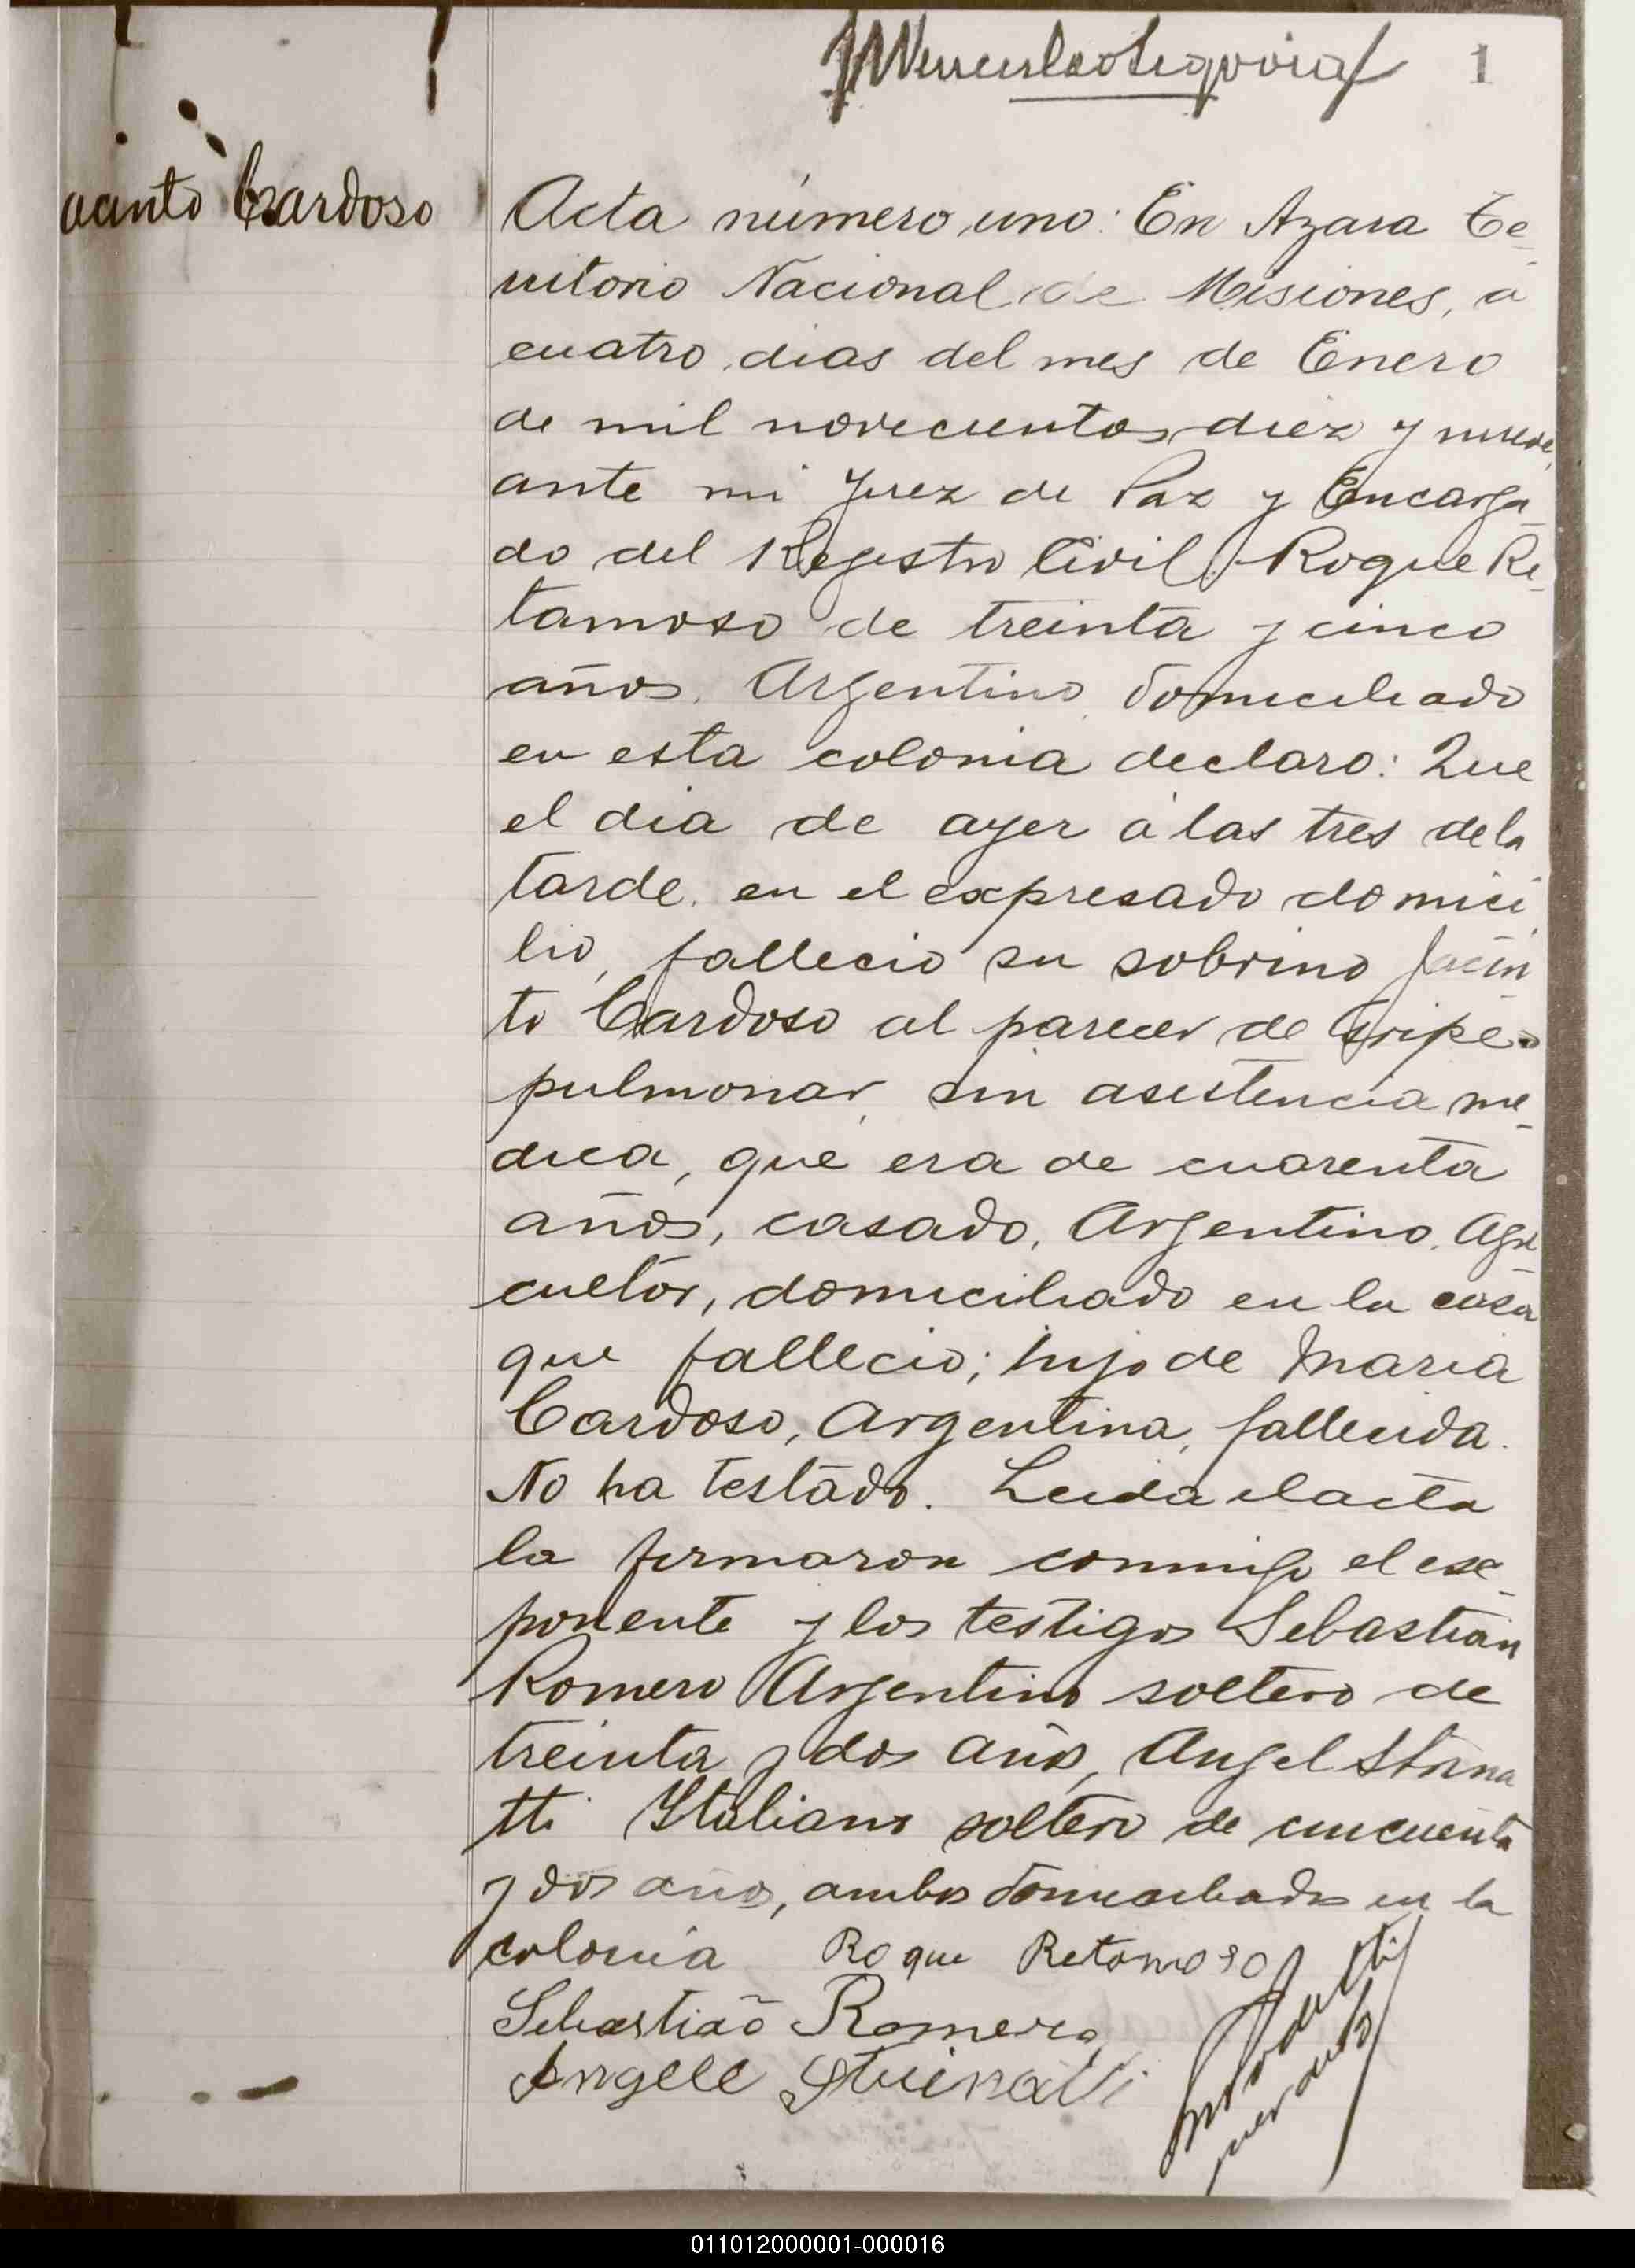 1
acinto Cardoso
Acta número uno: En Azara Te-
rritorio Nacional de Misiones, á
cuatro dias del mes de Enero
de mil novecientos diez y nueve,
ante mi Juez de Paz y Encarga-
do del Registro Civil, Roque Re-
tamoso de treinta y cinco
años, Argentino, domiciliado
en esta colonia declaro: Que
el dia de ayer á las tres de la
tarde, en el expresado domici-
lio, fallecio su sobrino Jacin-
to Cardoso al parecer de Gripe
pulmonar, sin asistencia me-
dica, que era de cuarenta
años, casado, Argentino, Agri-
cultor, domiciliado en la casa
que fallecio; hijo de Maria
Cardoso, Argentina, fallecida.
No ha testado. Leida el acta
la firmaron conmigo el ex-
ponente y los testigos Sebastian
Romero Argentino soltero de
treinta y dos años, Angel Storna
tti Italiano soltero de cincuenta
y dos años, ambos domiciliados en la
colonia Roque Retamoso
Sebastiaõ Romero
Angell
011012000001-000016